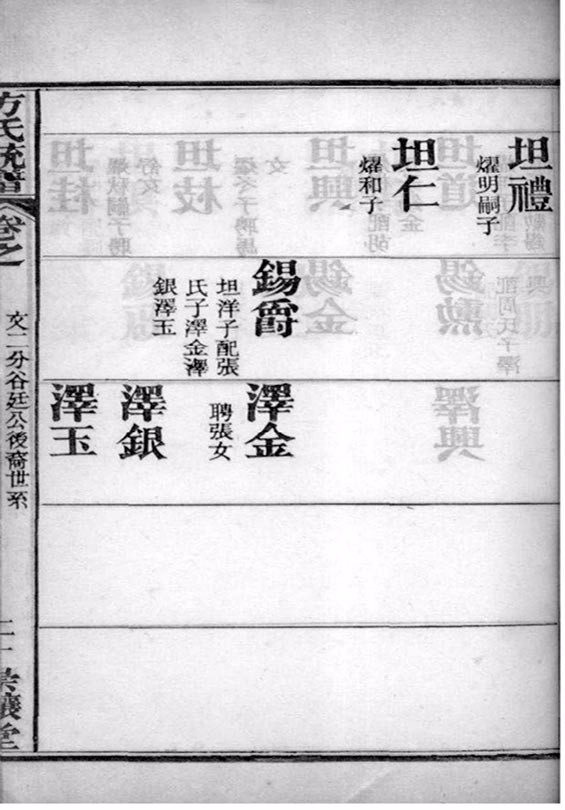 坦禮
燿明嗣子
坦仁
燿和子
錫爵
坦洋子配張
氏子澤金澤
銀澤玉
澤金
聘張女
澤銀
澤玉
方氏統譜
卷之
文二分谷廷公後裔世系